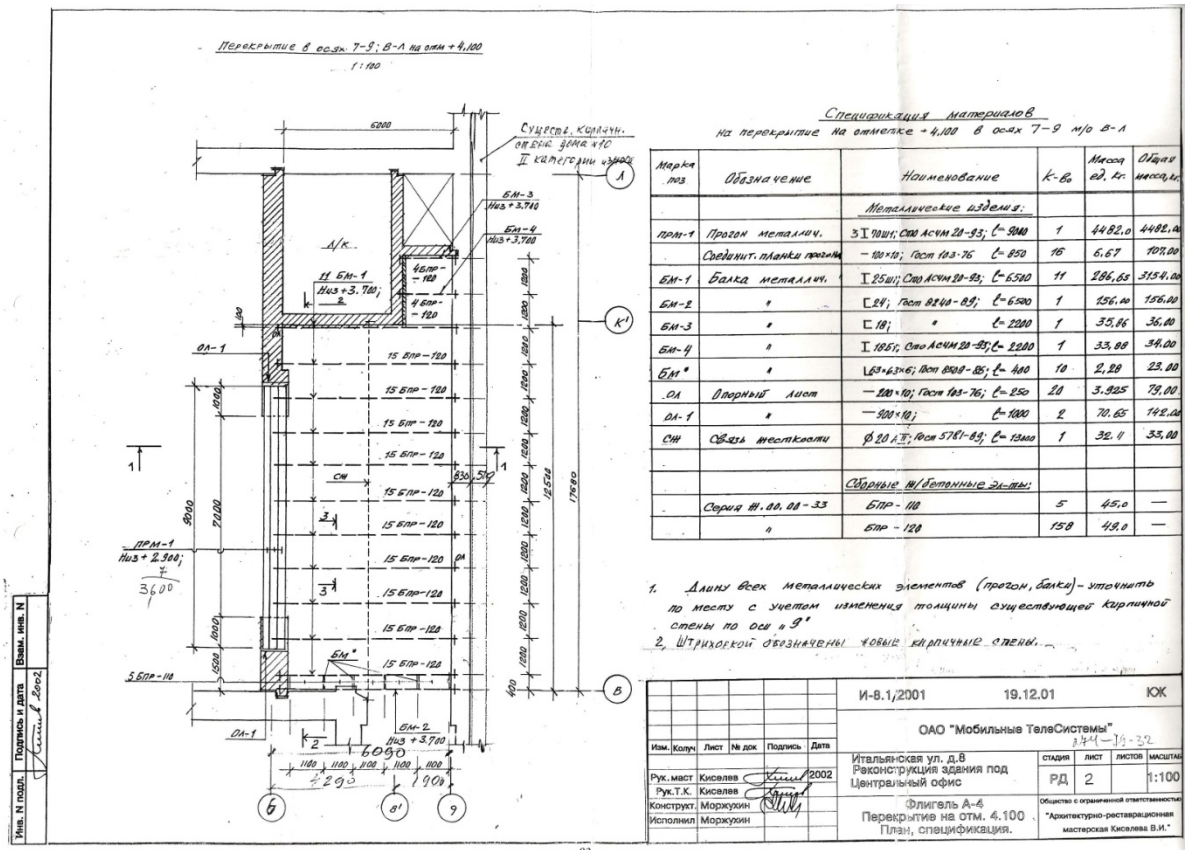 Перекрытие в осях 7-9; В-Л на отм +4,100
1:100
6000
Существ. кирпичн.
стена дома №10
II категории износа
Л
БМ-3
Низ +3.700
БМ-4
Низ +3,700
Л/К
11 БМ-1
Низ +3.700;
2
4 БПР-
-120
4 БПР-
-120
К'
100
ОЛ-1
ОЛ
15 БПР-120
15 БПР-120
15 БПР-120
15 БПР-120
15 БПР-120
15 БПР-120
15 БПР-120
15 БПР-120
15 БПР-120
15 БПР-120
1200
1200
1200
1200
1200
1200
1200
1200
1200
1200
1200
1200
400
12500
17680
830
510
1
1
СЖ
3
3
ОЛ
1000
7000
9000
1000
1500
ПРМ-1
Низ +2.900;
3600
БМ*
5 БПР-110
В
ОЛ-1
2
БМ-2
Низ +3.700
6090
1100 1100 1100 1100 1100
4290
1900
Б
В'
9
Спецификация материалов
на перекрытие на отметке +4,100 в осях 7-9 м/о В-Л
Марка поз Обозначение Наименование К-во Масса ед. кг. Общая масса, кг.
Металлические изделия:
ПРМ-1 Прогон металлич. 3 I 70Ш1; Сто АСЧМ 20-93; ℓ=9000 1 4482,0 4482,0
Соединит. планки прогона -100×10; Гост 103-76 ℓ=850 16 6,67 107,00
БМ-1 Балка металлич. I 25Ш1; Сто АСЧМ 20-93; ℓ=6500 11 286,65 3154,00
БМ-2 " [24; Гост 8240-89; ℓ=6500 1 156,00 156,00
БМ-3 " [18; " ℓ=2200 1 35,86 36,00
БМ-4 " I 18Б1; Сто АСЧМ 20-93; ℓ=2200 1 33,88 34.00
БМ* " L63×63×6; Гост 8509-86; ℓ=400 10 2,28 23.00
ОЛ Опорный лист -200×10; Гост 103-76; ℓ=250 20 3.925 79,00
ОЛ-1 " -900×10; ℓ=1000 2 70.65 142.00
СЖ Связь жесткости ϕ20 АII; Гост 5781-89; ℓ=13000 1 32.11 33,00
Сборные ж/бетонные эл-ты:
Серия Ж.00.00-33 БПР-110 5 45,0 —
" БПР-120 158 49,0 —
1. Длину всех металлических элементов (прогон, балки)-уточнить
по месту с учетом изменения толщины существующей кирпичной
стены по оси "9"
2, Штриховкой обозначены новые кирпичные стены.
И-8.1/2001 19.12.01 КЖ
ОАО "Мобильные ТелеСистемы"
Изм. Колуч Лист № док Подпись Дата
Итальянская ул. д.8
Реконструкция здания под
Центральный офис
СТАДИЯ ЛИСТ ЛИСТОВ МАСШТАБ
РД 2 1:100
Рук.маст Киселев 2002
Рук.Т.К. Киселев
Конструкт. Моржухин
Исполнил Моржухин
Флигель А-4
Перекрытие на отм. 4.100
План, спецификация.
Общество с ограниченной ответственностью
"Архитектурно-реставрационная
мастерская Киселева В.И."
Взам. инв. N
Подпись и дата
2002
Инв. N подл.